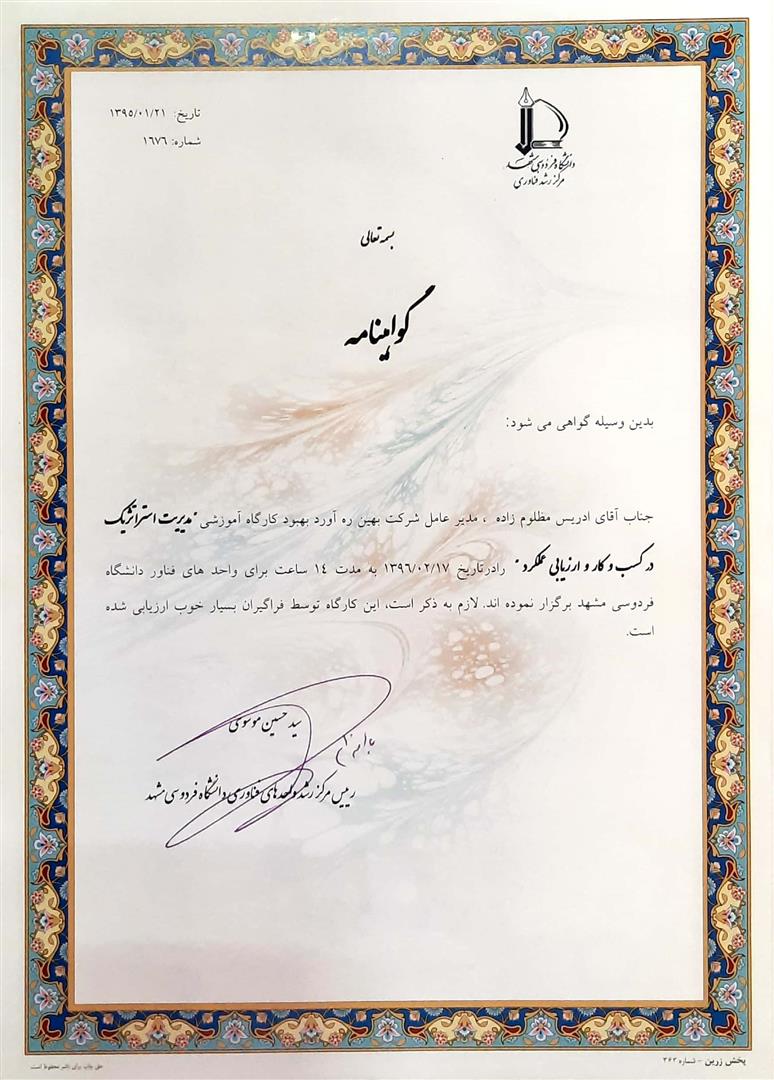 تاریخ: ۱۳۹۵/۰۱/۲۱
شماره: ۱۶۷۶
دانشگاه فردوسی مشهد
مرکز رشد فناوری
بسمه تعالی
گواهینامه
بدین وسیله گواهی می شود:
جناب آقای ادریس مظلوم زاده ، مدیر عامل شرکت بهین ره آورد بهبود کارگاه آموزشی "مدیریت استراتژیک
در کسب و کار و ارزیابی عملکرد" رادرتاریخ ۱۳۹۶/۰۲/۱۷ به مدت ۱۴ ساعت برای واحد های فناور دانشگاه
فردوسی مشهد برگزار نموده اند. لازم به ذکر است، این کارگاه توسط فراگیران بسیار خوب ارزیابی شده
است.
سید حسین موسوی
رییس مرکز رشد واحدهای فناوری دانشگاه فردوسی مشهد
پخش زرین - شماره ۳۶۳
حق چاپ برای ناشر محفوظ است